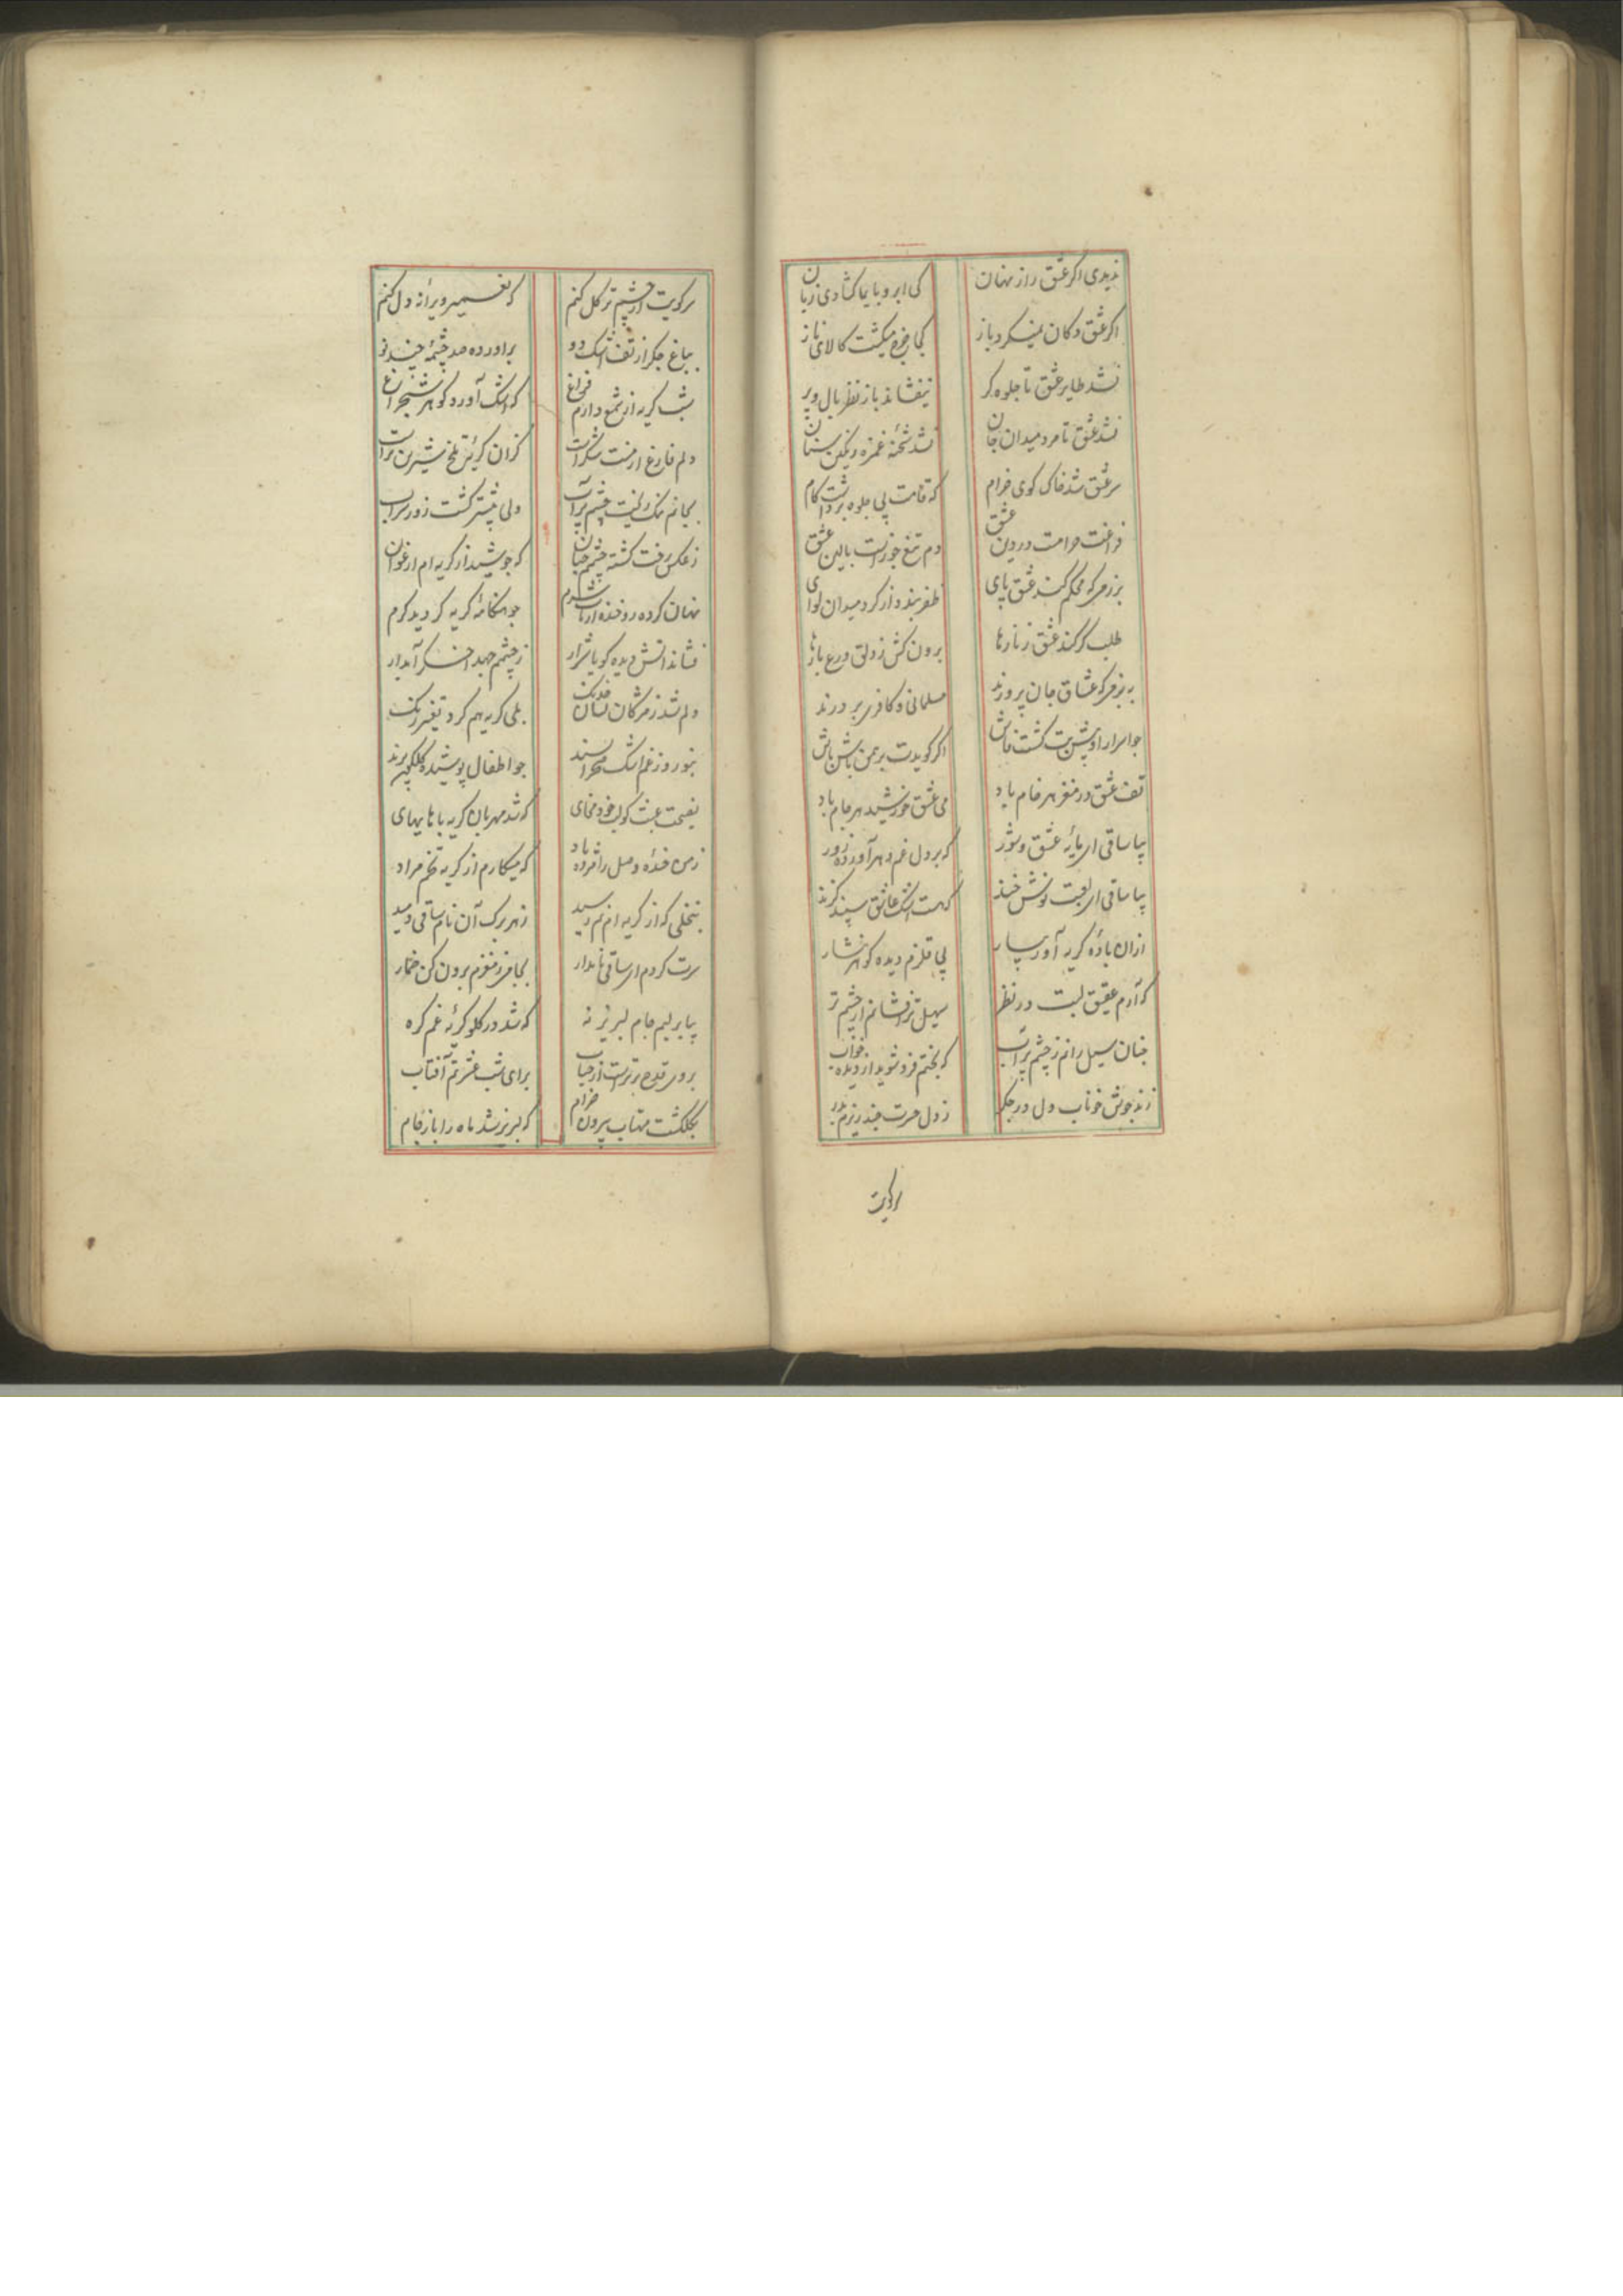 ندیدی اگر عشق راز نهان
کی ابرو بایما کشادی زبان
اگر عشق دکان نمیکرد باز
کجا خرج میکشت کالای ناز
نشد طایر عشق تا جلوه کر
نیفشاند باز نظر بال و پر
نشد عشق تا مرد میدان جان
نشد شحنهٔ غمزه رنگین سنان
سر عشق شد خاک کوی خرام
که قامت پی جلوه برداشت کام
فراغت حرامست در دین عشق
دم تیغ خونست بالین عشق
برزمی که محکم کند عشق پای
ظفر بندد از کرد میدان لوای
طلب کر کند عشق زنارها
برون کش ز دلق ورع تارها
به بزمی که عشاق جان پرورند
مسلمانی و کافری بر درند
جو اسرار او پیش بت کشت فاش
اگر کویدت برهمن باش باش
تف عشق در مغز هر خام باد
می عشق خورشید هر جام باد
بیا ساقی ای مایهٔ عشق و شور
که بر دل غم دهر آورده زور
بیا ساقی ای لعبت نوش خند
کهت اشک عاشق سپند کزند
ازان بادهٔ کریه آور بیار
پی قلزم دیده کوهر نثار
که آرم عقیق لبت در نظر
سهیل تر افشانم از چشم تر
جنان سیل رانم ز چشم پرآب
که بختم فرو شوید از دیده خواب
زند جوش خوناب دل در جکر
ز دل حسرت جند ریزم بدر
سرکویت
سرکویت از چشم تر کل کنم
که تعمیر ویرانهٔ دل کنم
بباغ جکر از تف اشک دو
برآورده صد چشمهٔ خند نو
شب کریه از شمع دارم فراغ
که اشک آورد کوهر شبچراغ
دلم فارغ از منت شکرست
کزان کریهٔ تلخ شیرین ترست
بجانم نمک ریخت چشم پرآب
ولی بیشتر کشت زور شراب
ز عکس رخت کشته چشمم جنان
که جوشید از کریه ام ارغوان
نهان کرده رو خنده از تاب شرم
جو هنکامهٔ کریه کردید کرم
فشاند آتش دیده کویا شرار
ز چشمم جهد اخکر آبدار
دلم شد ز مژکان نشان خدنک
بلی کریه هم کرد تغییر رنک
بنوروز غم اشک صحرا پسند
جو اطفال پوشیده کلکون پرند
نصیحت عبث کو لب خود مخای
که شد مهربان کریه با های های
زمن خندهٔ وصل را مژده باد
که میکارم از کریه تخم مراد
بنخلی که از کریه ام نم رسید
ز هر برک آن نام ساقی دمید
سرت کردم ای ساقی نامدار
بجامی ز مغزم برون کن خمار
بیا بر لبم جام لبریز نه
که شد در کلو کریهٔ غم کره
بروی قدح برترست از حباب
برای شب عشرتم آفتاب
بکلکشت مهتاب بیرون خرام
که لبریز شد ماه را باز جام